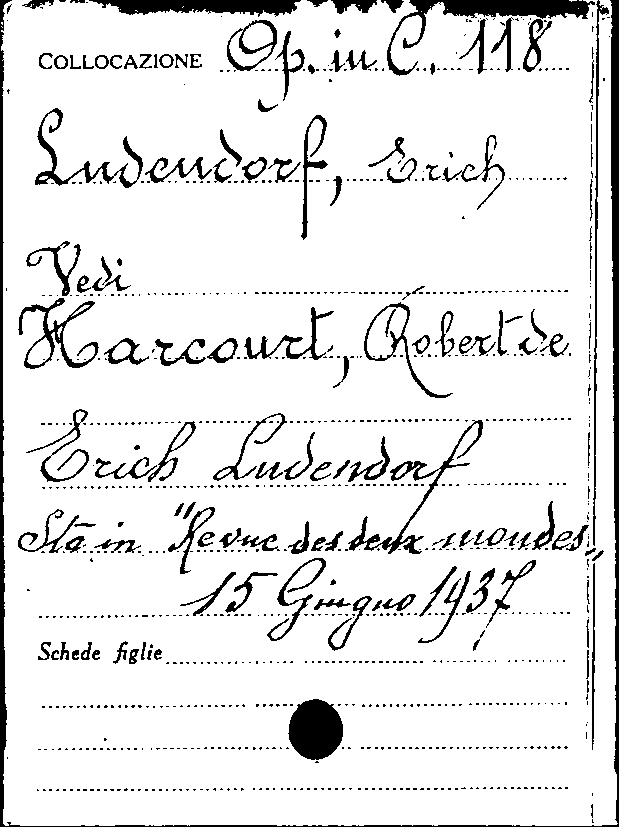 COLLOCAZIONE Op. in C. 118
Ludendorf, Erich
Vedi
Harcourt, Robert de
Erich Ludendorf
Sta in "Revue des deux mondes„
15 Giugno 1937
Schede figlie